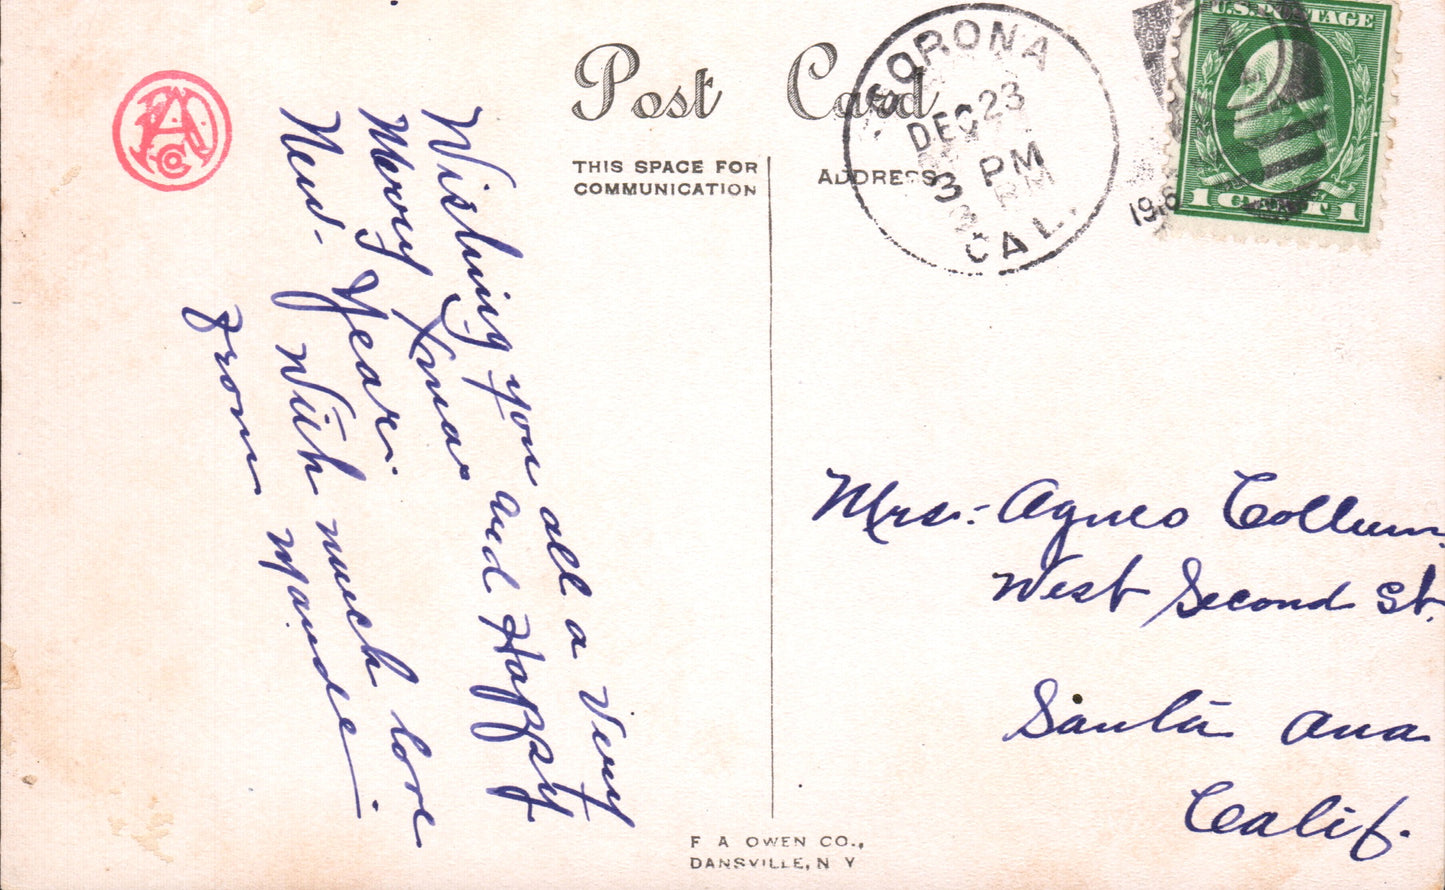 Post Card
THIS SPACE FOR
COMMUNICATION
ADDRESS
CORONA
DEC 23
3 PM
CAL.
U.S. POSTAGE
1 CENT 1
Wishing you all a Very
Merry Xmas and Happy
New-Year. With much love
From Maude
Mrs. Agnes Collum
West Second St.
Santa Ana
Calif.
F A OWEN CO.,
DANSVILLE, N Y